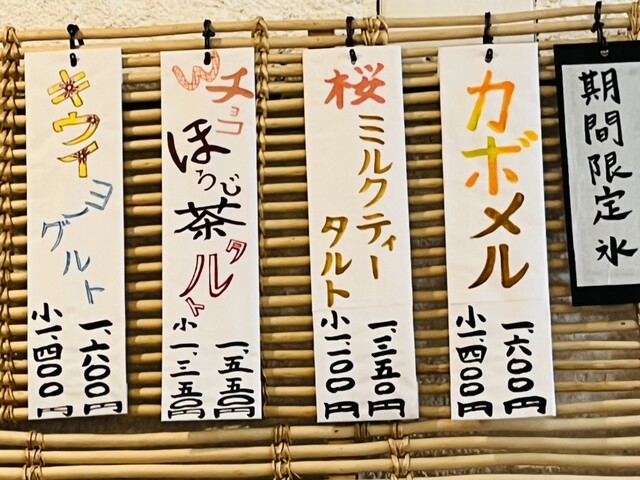 期間限定氷
カボメル
一、六〇〇円
小一、四〇〇円
桜
ミルクティー
タルト
一、三五〇円
小一、一〇〇円
Wチョコ
ほうじ茶
タルト
一、五五〇円
小一、三五〇円
キウイ
ヨーグルト
一、六〇〇円
小一、四〇〇円